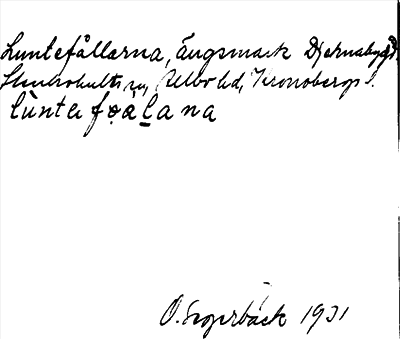 Luntefållarna, ängsmark Djurnabygd,
Stenbrohults sn, Allbo hd, Kronobergs l.
lùntɑfọäḻana
O. Sagerbäck 1931